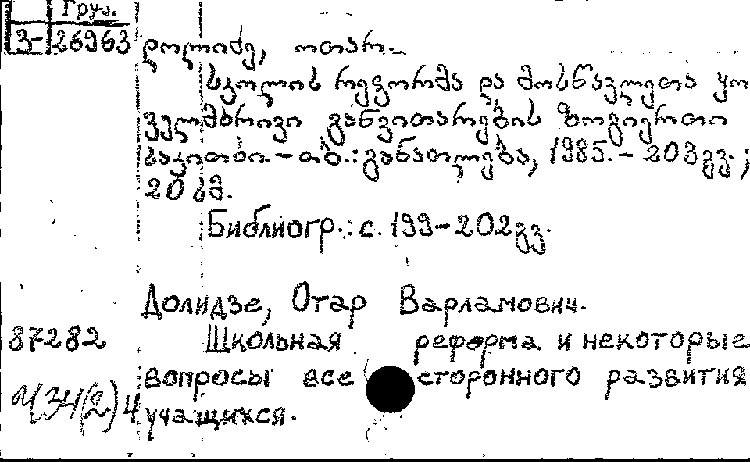 Груз.
3-26963
დოლიძე, ოთარ.
სკოლის რეფორმა და მოსწავლეთა ყო
ველმხრივი განვითარების ზოგიერთი
საკითხი.-თბ.:განათლება, 1985.-203გვ.;
20 სმ.
Библиогр.: с. 199-202გვ.
Долидзе, Отар Варламович.
87282 Школьная реформа и некоторые
вопросы все сторонного развития
учащихся.